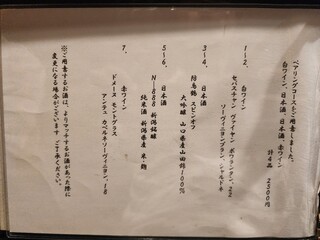 ペアリングコースをご用意しました。
白ワイン、日本酒、日本酒、赤ワイン
計4品　2500円
1~2、白ワイン
セバスチャン ヴァイヤン ボワランタン、22
ソーヴィニヨンブラン、シャルドネ
3~4、日本酒
陸奥鶴 スピンオフ
大吟醸 山口県産山田錦100%
5~6、日本酒
N-888 新潟銘醸
純米酒 新潟県産 米・麹
7、赤ワイン
ドメーヌ モントグラス
アンデュ カベルネソーヴィニヨン、18
※ご用意するお酒は、よりマッチするお酒があった際に
変更になる場合がございます。ご了承ください。